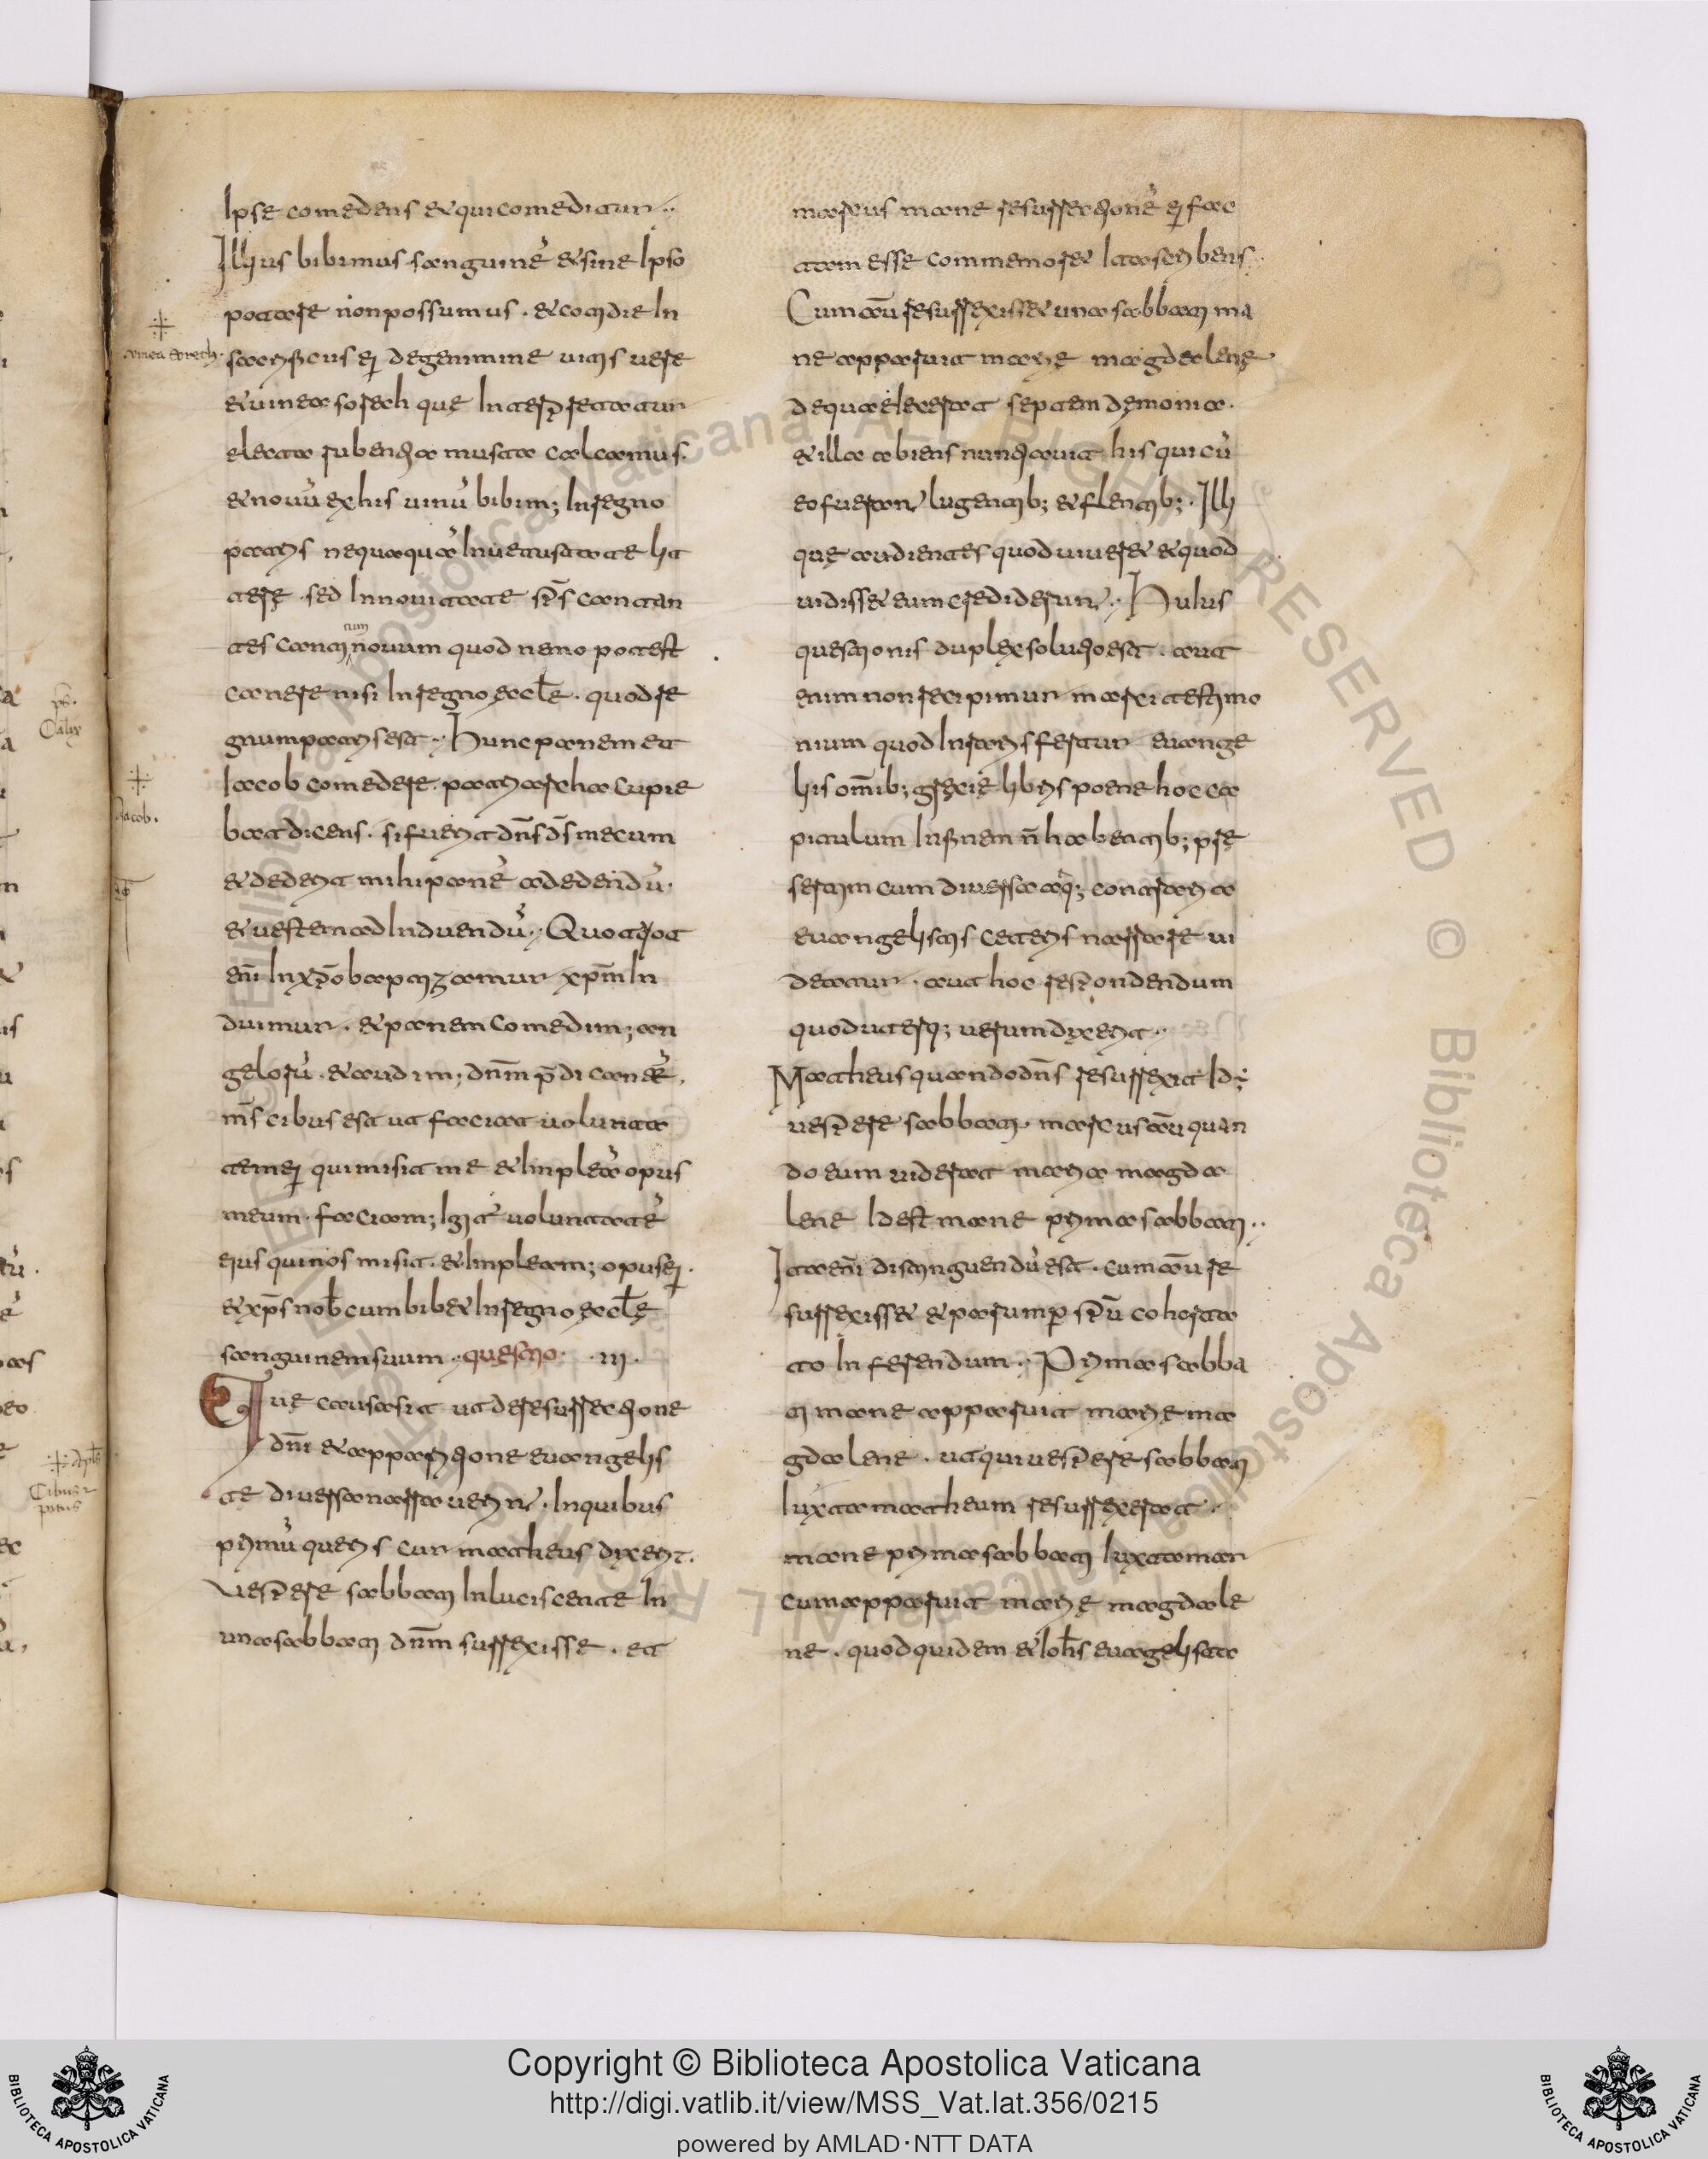 Ipse comedens & qui comeditur
Illius bibimus sanguinē & sine Ipso
potare non possumus. & cotidie In
sacrificiis ei de genimine uitis uere
& uineæ sorech que Interpretatur
electa rubentia musta calcamus.
& nouū ex his uinū bibim; In regno
patris nequaquā In uetustate lit
tere. sed In nouitate sp̄s cantan
tes canti cum nouum quod nemo potest
canere nisi In regno eccl̄e. quod re
gnum patris est. Hunc panem et
Iacob comedere patriarcha cupie
bat dicens. si fuerit dn̄s ds̄ mecum
& dederit mihi panē ad edendū.
& uestem ad Induendū. Quotquot
enī In xp̄o baptizamur xpm̄ In
duimur. & panem comedim; an
gelorū. & audim; dnm̄ p̄dicantē.
ms̄ cibus est ut faciat uolunta
tem ei qui misit me & Impleā opus
meum. faciam; Igit uoluntatē
eius qui nos misit. & Impleam; opus ei.
& xps̄ nob̄cum bib& In regno eccl̄e
sanguinem suum. questio. III.
Que causa sit ut de resurrectione
dnī & apparitione euangelis
te diuersa narrauerint. In quibus
primū queris cur matheus dixerit.
Uespere sabbati Inlucescente In
una sabbati dnm̄ surrexisse. et
marcus mane resurrectionē ei fac
tam esse commemor& Ita scribens
Cum aū surrexiss& una sabbati ma
ne apparuit marie magdalene
de qua eiecerat septem demonia.
& illa abiens nuntiauit his qui cū
eo fuerant lugentib; & flentib;. Illi
que audientes quod uiuer& & quod
uidiss& eum crediderunt. Huius
questionis duplex solutio est. aut
enim non recipimur marci testimo
nium quod In raris fertur euange
liis om̄ib; grecie libris poene hoc ca
pitulum In fine n̄ habentib; pre
sertim cum diuersa atq; contraria
euangelistis ceteris narrare ui
deatur. aut hoc respondendum
quod uterq; uerum dixerit.
Matheus quando dn̄s resurrexit Id ē
uespere sabbati. marcus aū quan
do eum uiderat maria magda
lene Id est mane prima sabbati
Ita enī distinguendū est. cum aū re
surrexiss& & parump sp̄ū cohorta
to In ferendum. Prima sabba
ti mane apparuit marie ma
gdalene. ut qui uespere sabbati
luxta matheum resurrexerat
mane prima sabbati luxta mar
cum apparuit marie magdale
ne. quod quidem & Ioh̄s euangelista
uinea sorech.
Iacob.
Calix
Cibus &
potus
Copyright © Biblioteca Apostolica Vaticana
http://digi.vatlib.it/view/MSS_Vat.lat.356/0215
powered by AMLAD·NTT DATA
BIBLIOTECA APOSTOLICA VATICANA
BIBLIOTECA APOSTOLICA VATICANA